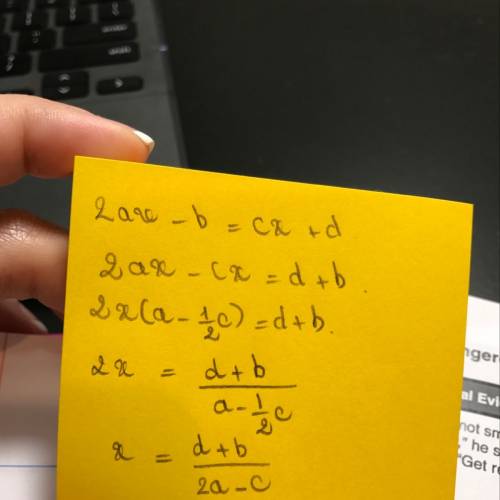 2ax - b = cx + d
2ax - cx = d + b.
2x(a - 1/2 c) = d + b.
2x = (d + b)/(a - 1/2 c)
x = (d + b)/(2a - c)
nger
al Evi
not sm
," he s
"Get re